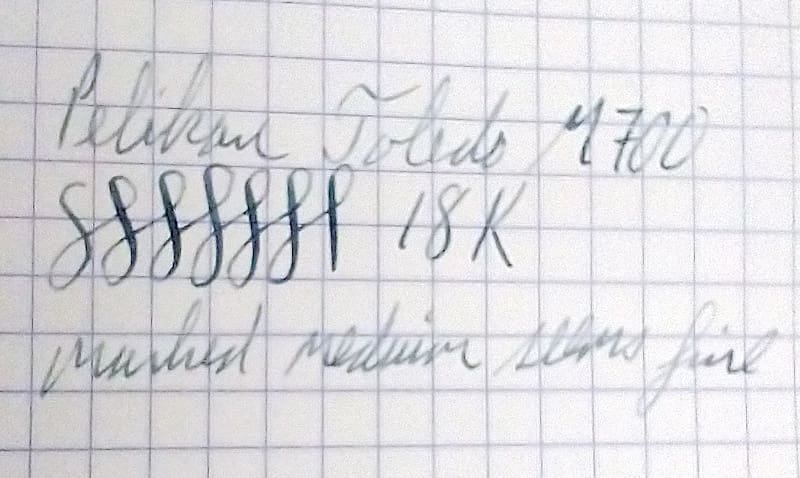 Pelikan Toledo M700
18K
marked medium seems fine